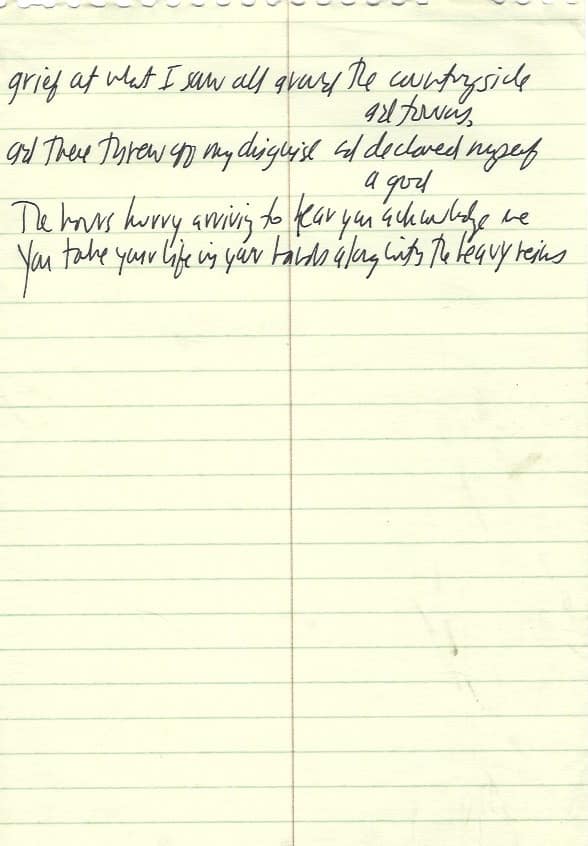 grief at what I saw all around the countryside
and towns,
and there threw off my disguise and declared myself
a god
The hours hurry arriving to hear you acknowledge me
You take your life in your hands along with the heavy reins